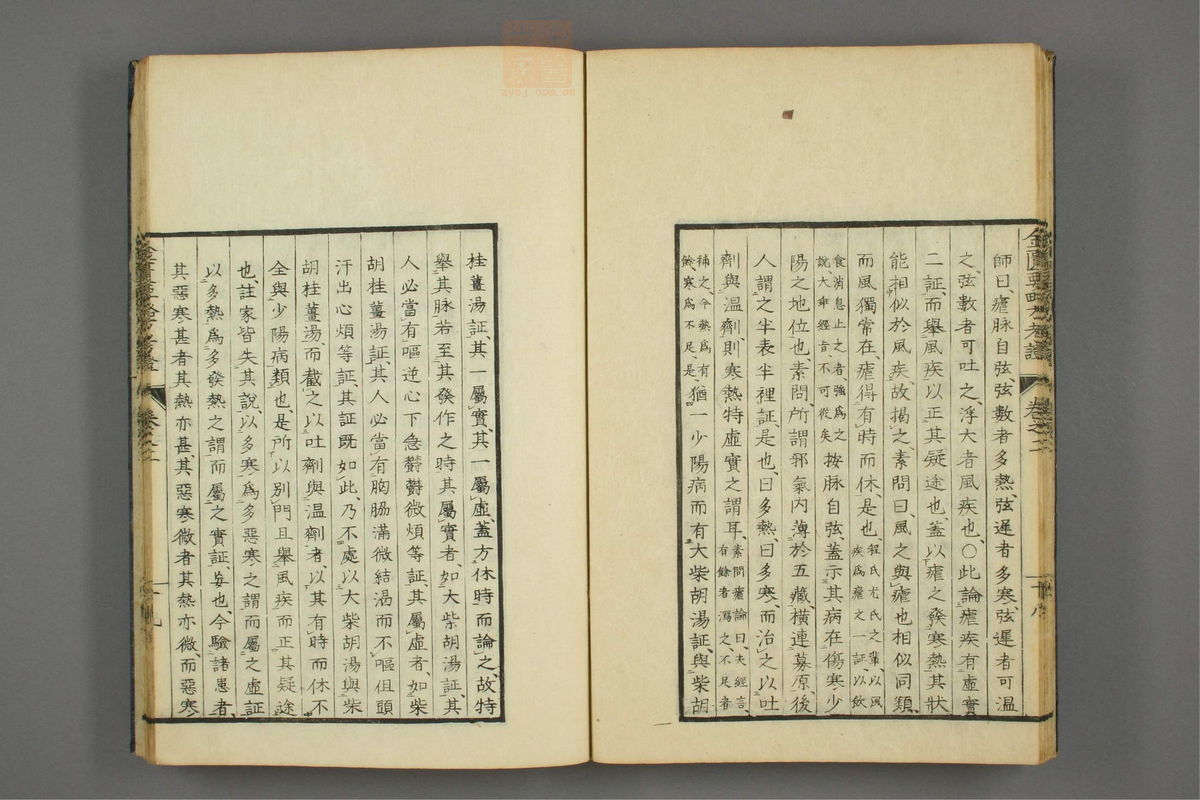 師曰、瘧脉自弦、弦數者多熱、弦遲者多寒、弦遲者可溫
之、弦數者可吐之、浮大者風疾也、〇此論瘧疾有虛實
二証、而舉風疾以正其疑途也、蓋以瘧之發寒熱其狀
能相似於風疾、故揭之、素問曰、風之與瘧也相似同類、
而風獨常在、瘧得有時而休是也、程氏尤氏之輩以風
疾爲瘧之一証、以飲
食消息止之者強爲之
說、大乖經旨、不可從矣、按脉自弦、蓋示其病在傷寒少
陽之地位也、素問所謂邪氣内薄於五藏、横連募原、後
人謂之半表半裡証、是也、曰多熱、曰多寒、而治之以吐
劑與温劑、則寒熱特虛實之謂耳、素問瘧論曰、夫經言、
有餘者瀉之、不足者
補之、今熱爲有
餘、寒爲不足、是、猶一少陽病而有大柴胡湯証、與柴胡
桂薑湯証、其一屬實、其一屬虛、蓋方休時而論之、故特
舉其脉若至其發作之時、其屬實者、如大柴胡湯証、其
人必當有嘔逆心下急鬱鬱微煩等証、其屬虛者、如柴
胡桂薑湯証、其人必當有胸脇滿微結渴而不嘔但頭
汗出心煩等証、其証既如此、乃不處以大柴胡湯與柴
胡桂薑湯、而截之以吐劑與温劑者、以其有時而休、不
全與少陽病類也、是所以別門且舉風疾而正其疑途
也、註家皆失其說、以多寒爲多惡寒之謂而屬之虛証
以多熱爲多發熱之謂而屬之實証、妄也、今驗諸患者、
其惡寒甚者其熱亦甚、其惡寒微者其熱亦微、而惡寒
卷之二
十八
卷之二
十九